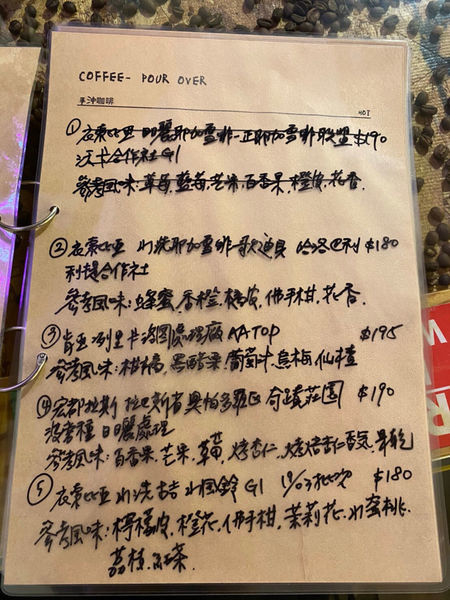 COFFEE- POUR OVER
手沖咖啡
HOT
① 衣索比亞 日曬耶加雪菲 正耶加雪菲聯盟 $190
沃卡合作社 G1
參考風味:草莓,藍莓,芒果,百香果,橙皮,花香.
② 衣索比亞 水洗耶加雪菲 歌迪貝 哈洛巴利 $180
合作社
參考風味:蜂蜜,香橙,橘皮,佛手柑,花香.
③ 肯亞 處理廠 AA TOP $195
參考風味:柑橘,黑醋栗,葡萄汁,烏梅,仙楂
④ 宏都拉斯 奇蹟莊園 $190
波旁種 日曬處理
參考風味:百香果,芒果,草莓,烤杏仁,烤焙杏仁香氣
⑤ 衣索比亞 水洗古吉 水風鈴 G1 $180
參考風味:檸檬皮,橙花,佛手柑,茉莉花,水蜜桃.
荔枝.紅茶.